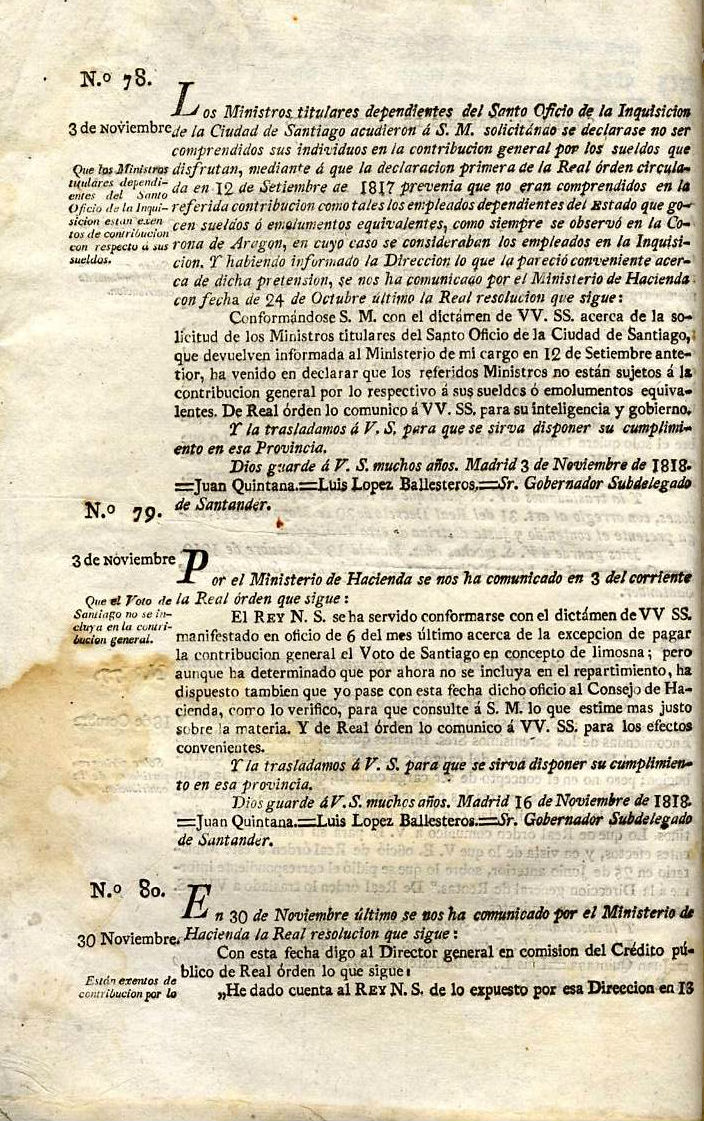 N.º 78.
3 de Noviembre
Que los Ministros
titulares dependi-
entes del Santo
Oficio de la Inqui-
sicion estan exen-
tos de contribucion
con respecto á sus
sueldos.
Los Ministros titulares dependientes del Santo Oficio de la Inquisicion
de la Ciudad de Santiago acudieron á S. M. solicitando se declarase no ser
comprendidos sus individuos en la contribucion general por los sueldos que
disfrutan, mediante á que la declaracion primera de la Real órden circula-
da en 12 de Setiembre de 1817 prevenia que no eran comprendidos en la
referida contribucion como tales los empleados dependientes del Estado que go-
cen sueldos ó emolumentos equivalentes, como siempre se observó en la Co-
rona de Aragon, en cuyo caso se consideraban los empleados en la Inquisi-
cion. Y habiendo informado la Direccion lo que la pareció conveniente acer-
ca de dicha pretension, se nos ha comunicado por el Ministerio de Hacienda
con fecha de 24 de Octubre último la Real resolucion que sigue:
Conformándose S. M. con el dictámen de VV. SS. acerca de la so-
licitud de los Ministros titulares del Santo Oficio de la Ciudad de Santiago,
que devuelven informada al Ministerio de mi cargo en 12 de Setiembre ante-
rior, ha venido en declarar que los referidos Ministros no están sujetos á la
contribucion general por lo respectivo á sus sueldos ó emolumentos equiva-
lentes. De Real órden lo comunico á VV. SS. para su inteligencia y gobierno.
Y la trasladamos á V. S. para que se sirva disponer su cumplimi-
ento en esa Provincia.
Dios guarde á V. S. muchos años. Madrid 3 de Noviembre de 1818.
=Juan Quintana.=Luis Lopez Ballesteros.=Sr. Gobernador Subdelegado
de Santander.
N.º 79.
3 de Noviembre
Que el Voto de
Santiago no se in-
cluya en la contri-
bucion general.
Por el Ministerio de Hacienda se nos ha comunicado en 3 del corriente
la Real órden que sigue:
El REY N. S. se ha servido conformarse con el dictámen de VV SS.
manifestado en oficio de 6 del mes último acerca de la excepcion de pagar
la contribucion general el Voto de Santiago en concepto de limosna; pero
aunque ha determinado que por ahora no se incluya en el repartimiento, ha
dispuesto tambien que yo pase con esta fecha dicho oficio al Consejo de Ha-
cienda, como lo verifico, para que consulte á S. M. lo que estime mas justo
sobre la materia. Y de Real órden lo comunico á VV. SS. para los efectos
convenientes.
Y la trasladamos á V. S. para que se sirva disponer su cumplimien-
to en esa provincia.
Dios guarde á V. S. muchos años. Madrid 16 de Noviembre de 1818.
=Juan Quintana.=Luis Lopez Ballesteros.=Sr. Gobernador Subdelegado
de Santander.
N.º 80.
30 Noviembre.
Están exentos de
contribucion por lo
En 30 de Noviembre último se nos ha comunicado por el Ministerio de
Hacienda la Real resolucion que sigue:
Con esta fecha digo al Director general en comision del Crédito pú-
blico de Real órden lo que sigue:
„He dado cuenta al REY N. S. de lo expuesto por esa Direccion en 13